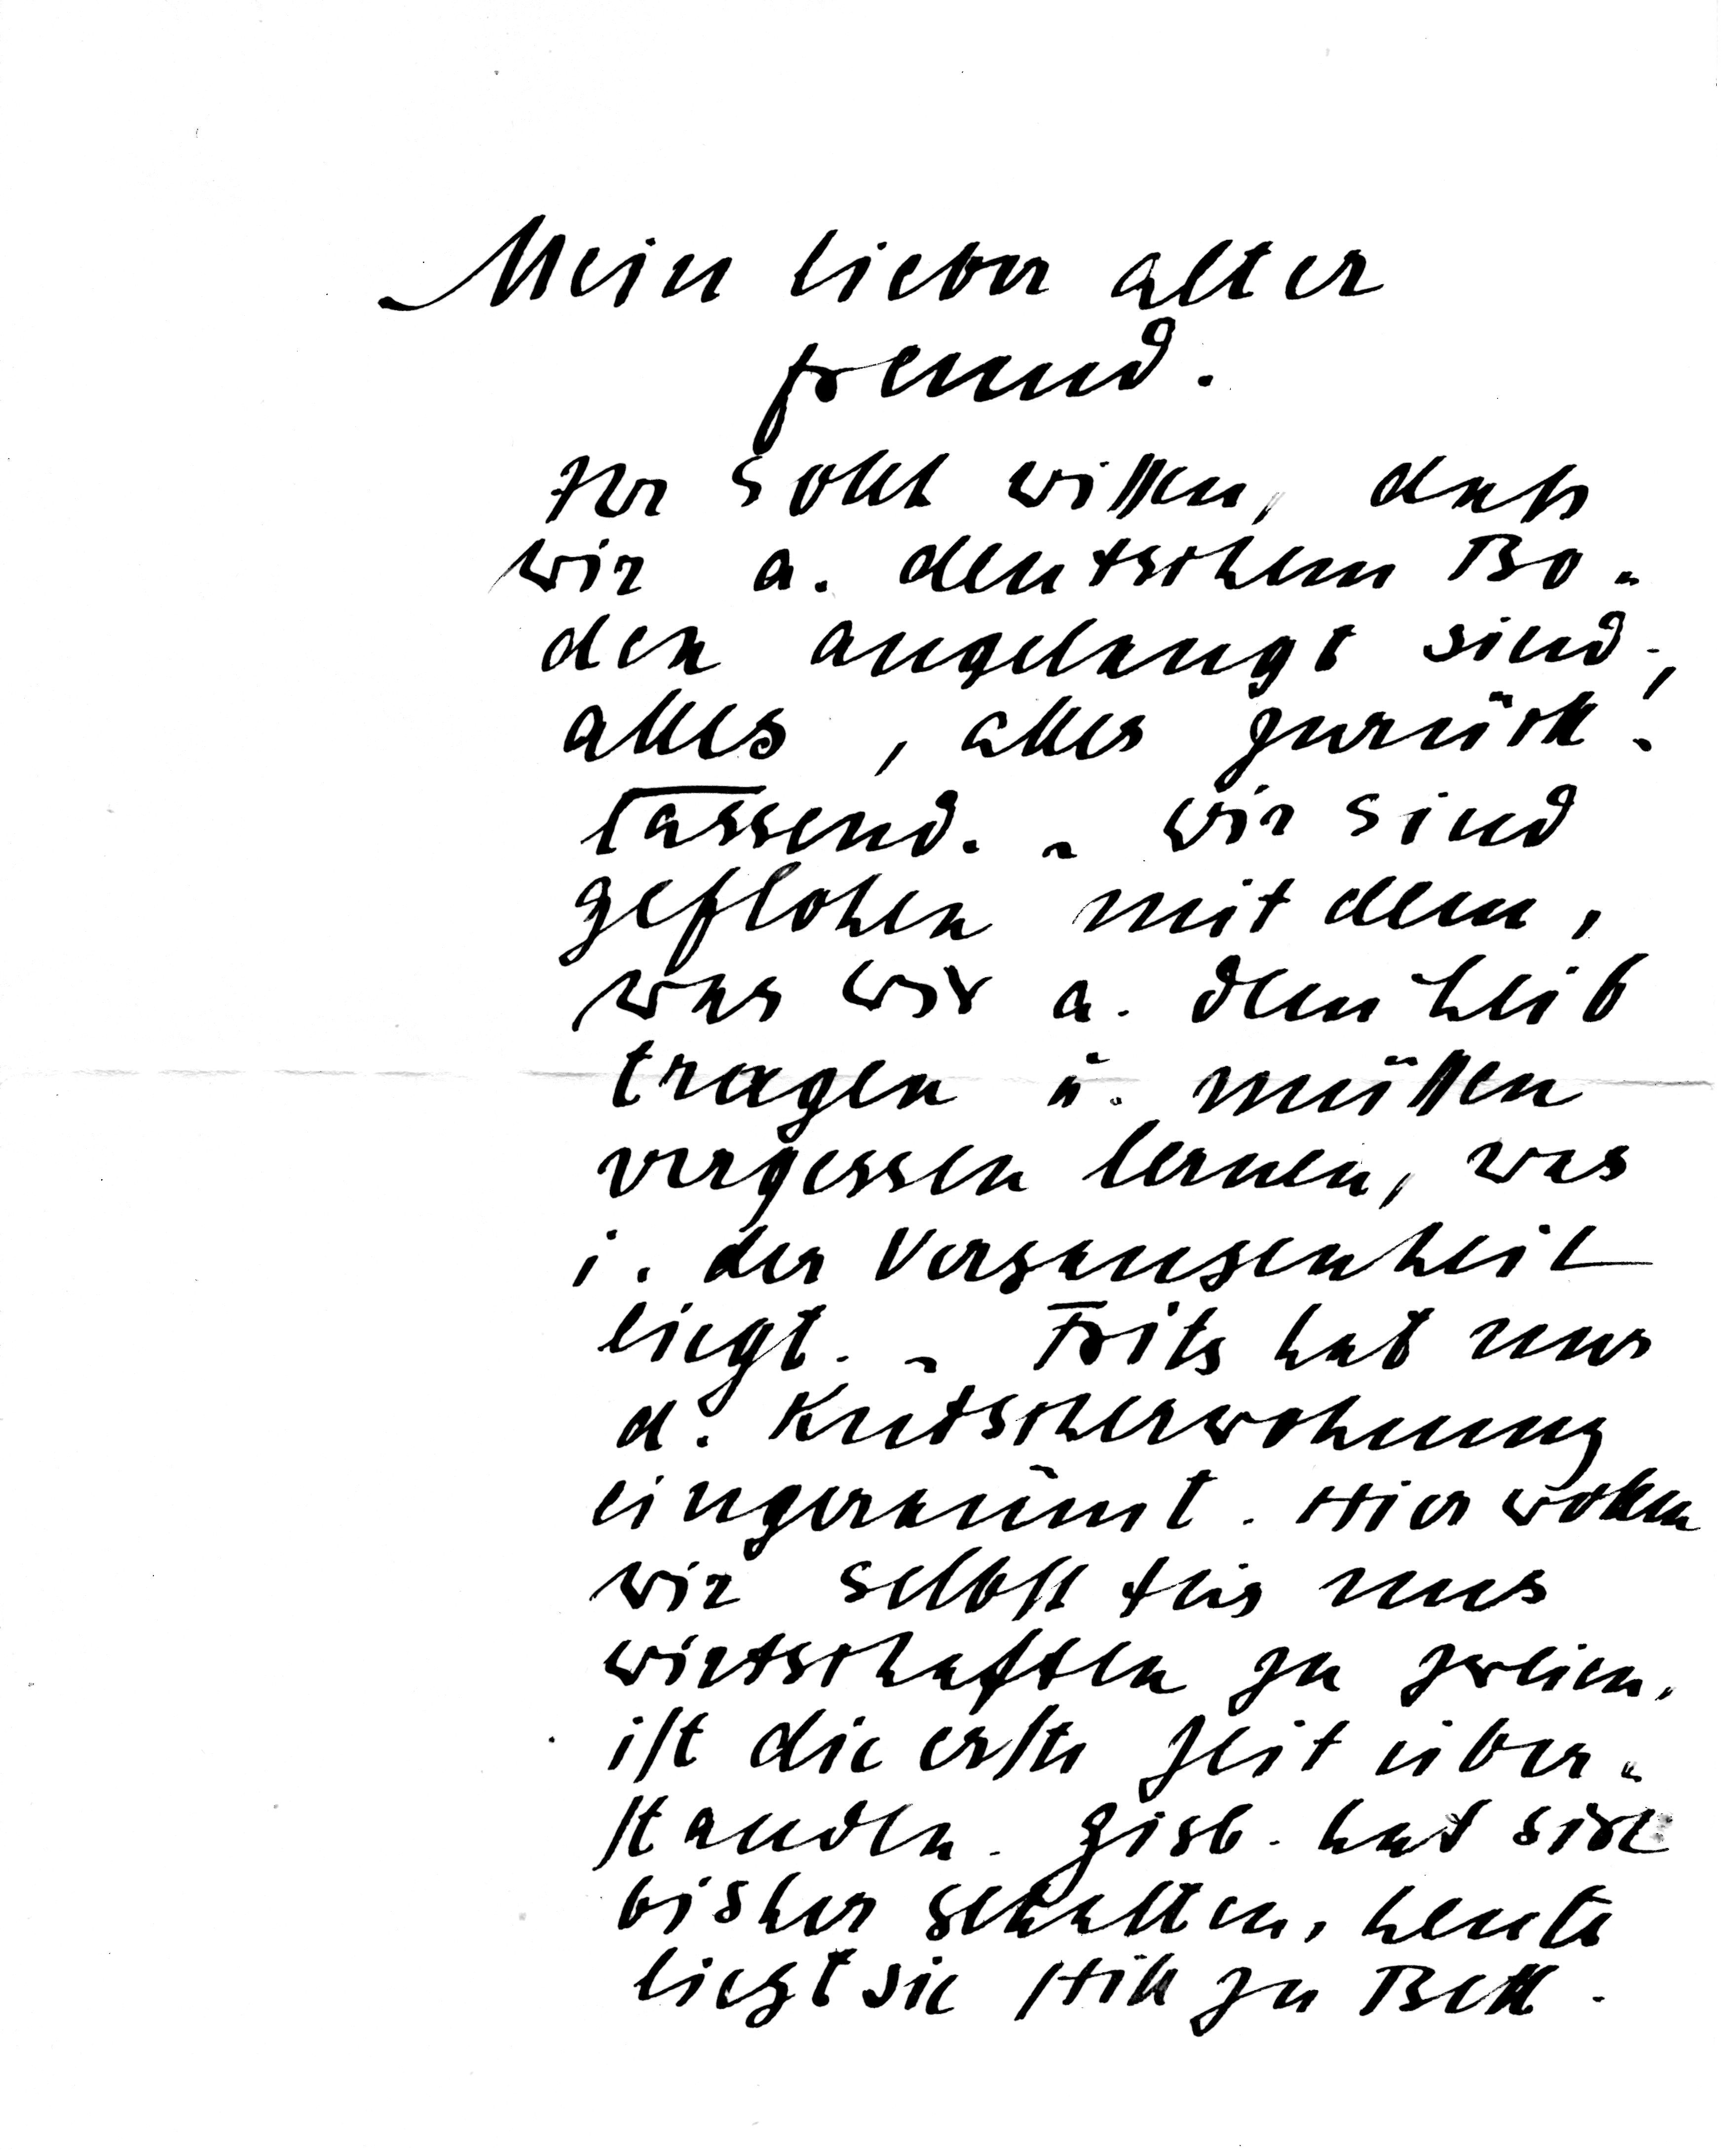 Mein lieber alter
Freund.
Ihr sollt wissen, daß
wir a. deutschem Bo-
den angelangt sind,
alles, alles zurück-
lassend. - Wir sind
geflohen mit dem,
was wir a. dem Leib
tragen u. müssen
vergessen lernen, was
i. der Vergangenheit
liegt. - Fritz hat uns
d. Kutscherwohnung
eingeräumt. Hier wollen
wir selbst für uns
wirtschaften zu zweien,
ist die erste Zeit über-
standen. Gisb. hat sich
bisher gehalten, heute
liegt sie still zu Bett.